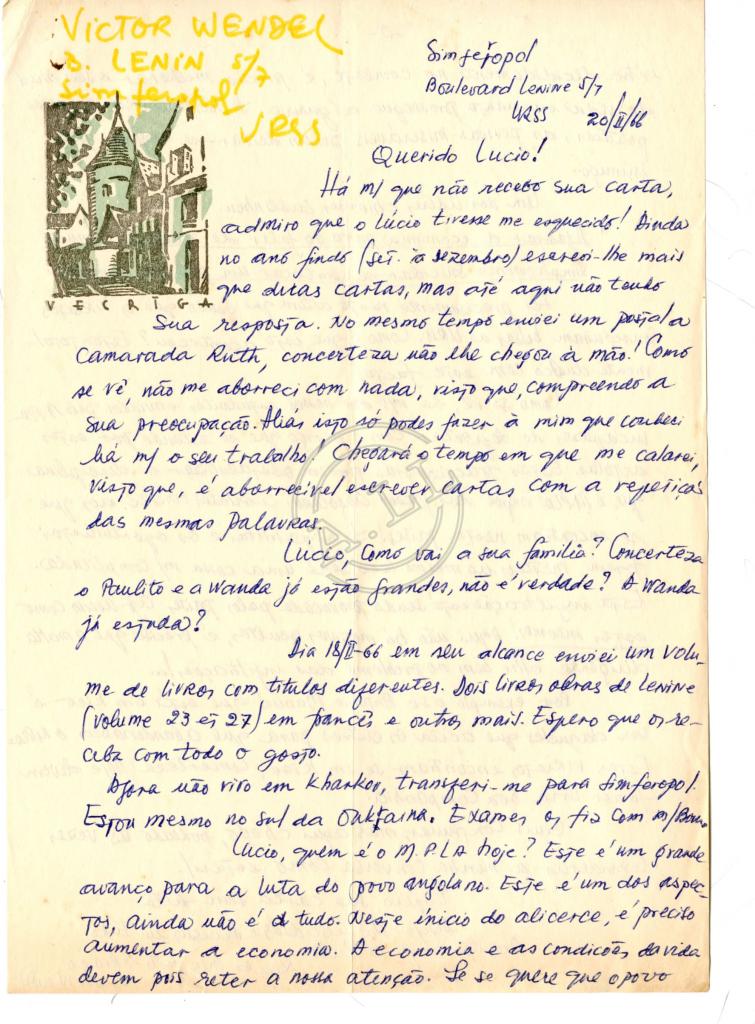 VICTOR WENDEL
B. LENIN 5/7
Simferopol
URSS
VECRIGA
Simferopol
Boulevard Lenine 5/7
URSS 20/II/66
Querido Lucio!
Há m/ que não recebo sua carta,
admiro que o Lúcio tivesse me esquecido! Ainda
no ano findo (set. a dezembro) escrevi-lhe mais
que duas cartas, mas até aqui não tendo
sua resposta. No mesmo tempo enviei um postal a
Camarada Ruth, concerteza não lhe chegou à mão! Como
se vê, não me aborreci com nada, visto que, compreendo a
sua preocupação. Aliás isto só podes fazer à mim que conheci
há m/ o seu trabalho! Chegará o tempo em que me calarei,
visto que, é aborrecivel escrever cartas com a repetiças
das mesmas palavras.
Lúcio, como vai a sua familia? Concerteza
o Paulito e a Wanda já estão grandes, não é verdade? A Wanda
já estuda?
Dia 18/II-66 em seu alcance enviei um volu-
me de livros com titulos diferentes. Dois livros obras de Lenine
(volume 23 e 27) em francês e outros mais. Espero que os re-
ceba com todo o gosto.
Agora não vivo em Kharkov, transferi-me para Simferopol.
Estou mesmo no sul da Oukraina. Exames os fiz com m/
Lucio, quem é o M.P.L.A hoje? Este é um grande
avanço para a luta do povo angolano. Este é um dos aspec-
tos, ainda não é tudo. Neste ínicio do alicerce, é preciso
aumentar a economia. A economia e as condicões da vida
devem pois reter a nossa atenção. Se se quere que o povo
A.LL